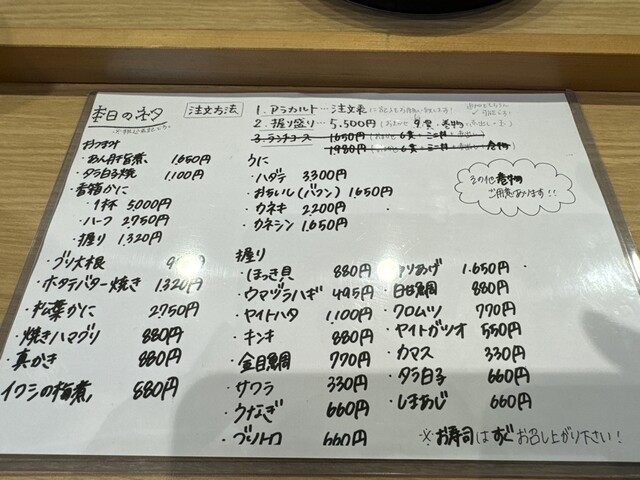 本日のネタ
※税込表記です。
注文方法
1. アラカルト…注文表に記入をお願い致します!
2. 握り盛り…5,500円(おまかせ 9貫・巻物
3. ランチコース 1650円
1980円
その他巻物
ご用意あります!!
おつまみ
・あん肝旨煮 1,650円
・タラ白子焼 1,100円
・香箱かに
・1杯 5,000円
・ハーフ 2750円
・握り 1,320円
・ブリ大根
・ホタテバター焼き 1,320円
・松葉かに 2750円
・焼きハマグリ 880円
・真かき 880円
イワシの梅煮 880円
うに
・ハダテ 3300円
・おちいし(バフン) 1,650円
・カネキ 2200円
・カネシン 1,650円
握り
・ほっき貝 880円
・ウマヅラハギ 495円
・ヤイトハタ 1,100円
・キンキ 880円
・金目鯛 770円
・サワラ 330円
・うなぎ 660円
・ブリトロ 660円
1,650円
・甘鯛 880円
・クロムツ 770円
・ヤイトガツオ 550円
・カマス 330円
・タラ白子 660円
・しまあじ 660円
※お寿司はすぐお召し上がり下さい!